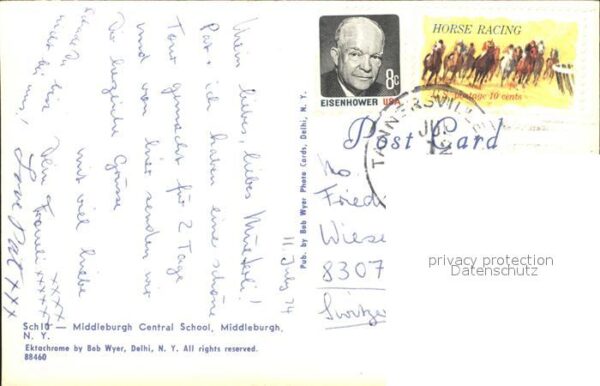 Mein liebes, liebes Mueterli!
Pat + ich haben eine schöne
Tour gemacht für 2 Tage
und von hier senden wir
Dir herzliche Grüsse
mit viel liebe
Dein Franeli xxxxx
xxxx
Love Pat xxx
11. July 74
Pub. by Bob Wyer Photo Cards, Delhi, N. Y.
EISENHOWER USA
8c
HORSE RACING
U.S. postage 10 cents
TANNERSVILLE
JUL
Post Card
Fried
Wiese
8307
Switze
privacy protection
Datenschutz
Sch10 — Middleburgh Central School, Middleburgh,
N. Y.
Ektachrome by Bob Wyer, Delhi, N. Y. All rights reserved.
88460